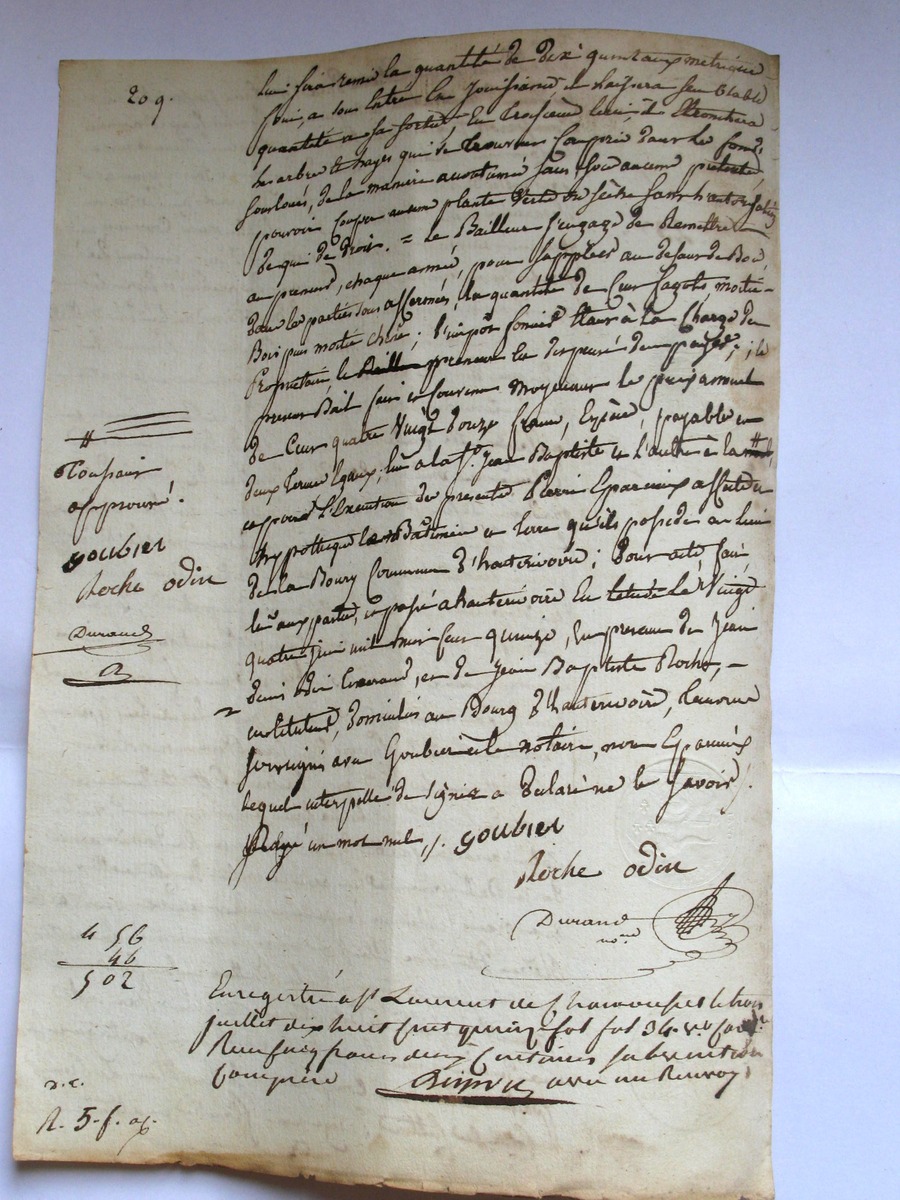 209.
lui sera remis la quantité de dix quintaux metriques
foin, a son entrée en Jouissance, et laissera semblable
quantité a sa sortie En troisieme lieu, il
les arbres & hayes qui se trouvent Compris dans le fond
sousloués, de la maniere accoutumé sans sous aucun pretexte
pouvoir Couper aucune plante Verte ou seche sans l'autorisation
de qui de droit. = Le Bailleur s'engage de Remettre
au preneur, chaque année, pour suppléer au defaut de Bois
dans les parties sous affermées, la quantité de Cent fagots moitié
Bois pin moitié chêne; l'impôt foncier étant à la Charge du
Propriétaire le preneur En dispensé du payer; le
present Bail fait et souvenu Moyennant le prix annuel
de Cent quatre Vingt Douze francs, Espèce, payable en
deux termes Egaux, l'un a la St. Jean Baptiste et L'autre à la
et pour L'Execution des presentes Pierre Eparvieux affecte et
hypotheque les Batiments et terre qu'ils possede au lieu
de La Boury Commune d'hauterivoire; Dont acte fait
lu aux parties, et passé a hauterivoire En l'etude Le Vingt
quatre juin mil huit cent quinze, En presence de Jean
denis Odin et de Jean Baptiste Roche,
instituteur, Domiciliés au Bourg d'hauterivoire, temoins
soussignés avec Goubier et le notaire, non Eparvieux
lequel interpellé de signer a Declaré ne le savoir /.
Rayé un mot nul /. goubier
Roche odin
Durand
no.re
#
Toussaint
approuvé.
goubier
Roche odin
Durand
456
46
502
Enregistré a St Laurent de Chamousset le trois
juillet dix huit cent quinze fol 34 v.o
Reçu cinq francs deux Centimes subvention
Comprise avec un Renvoy
R. 5. f.